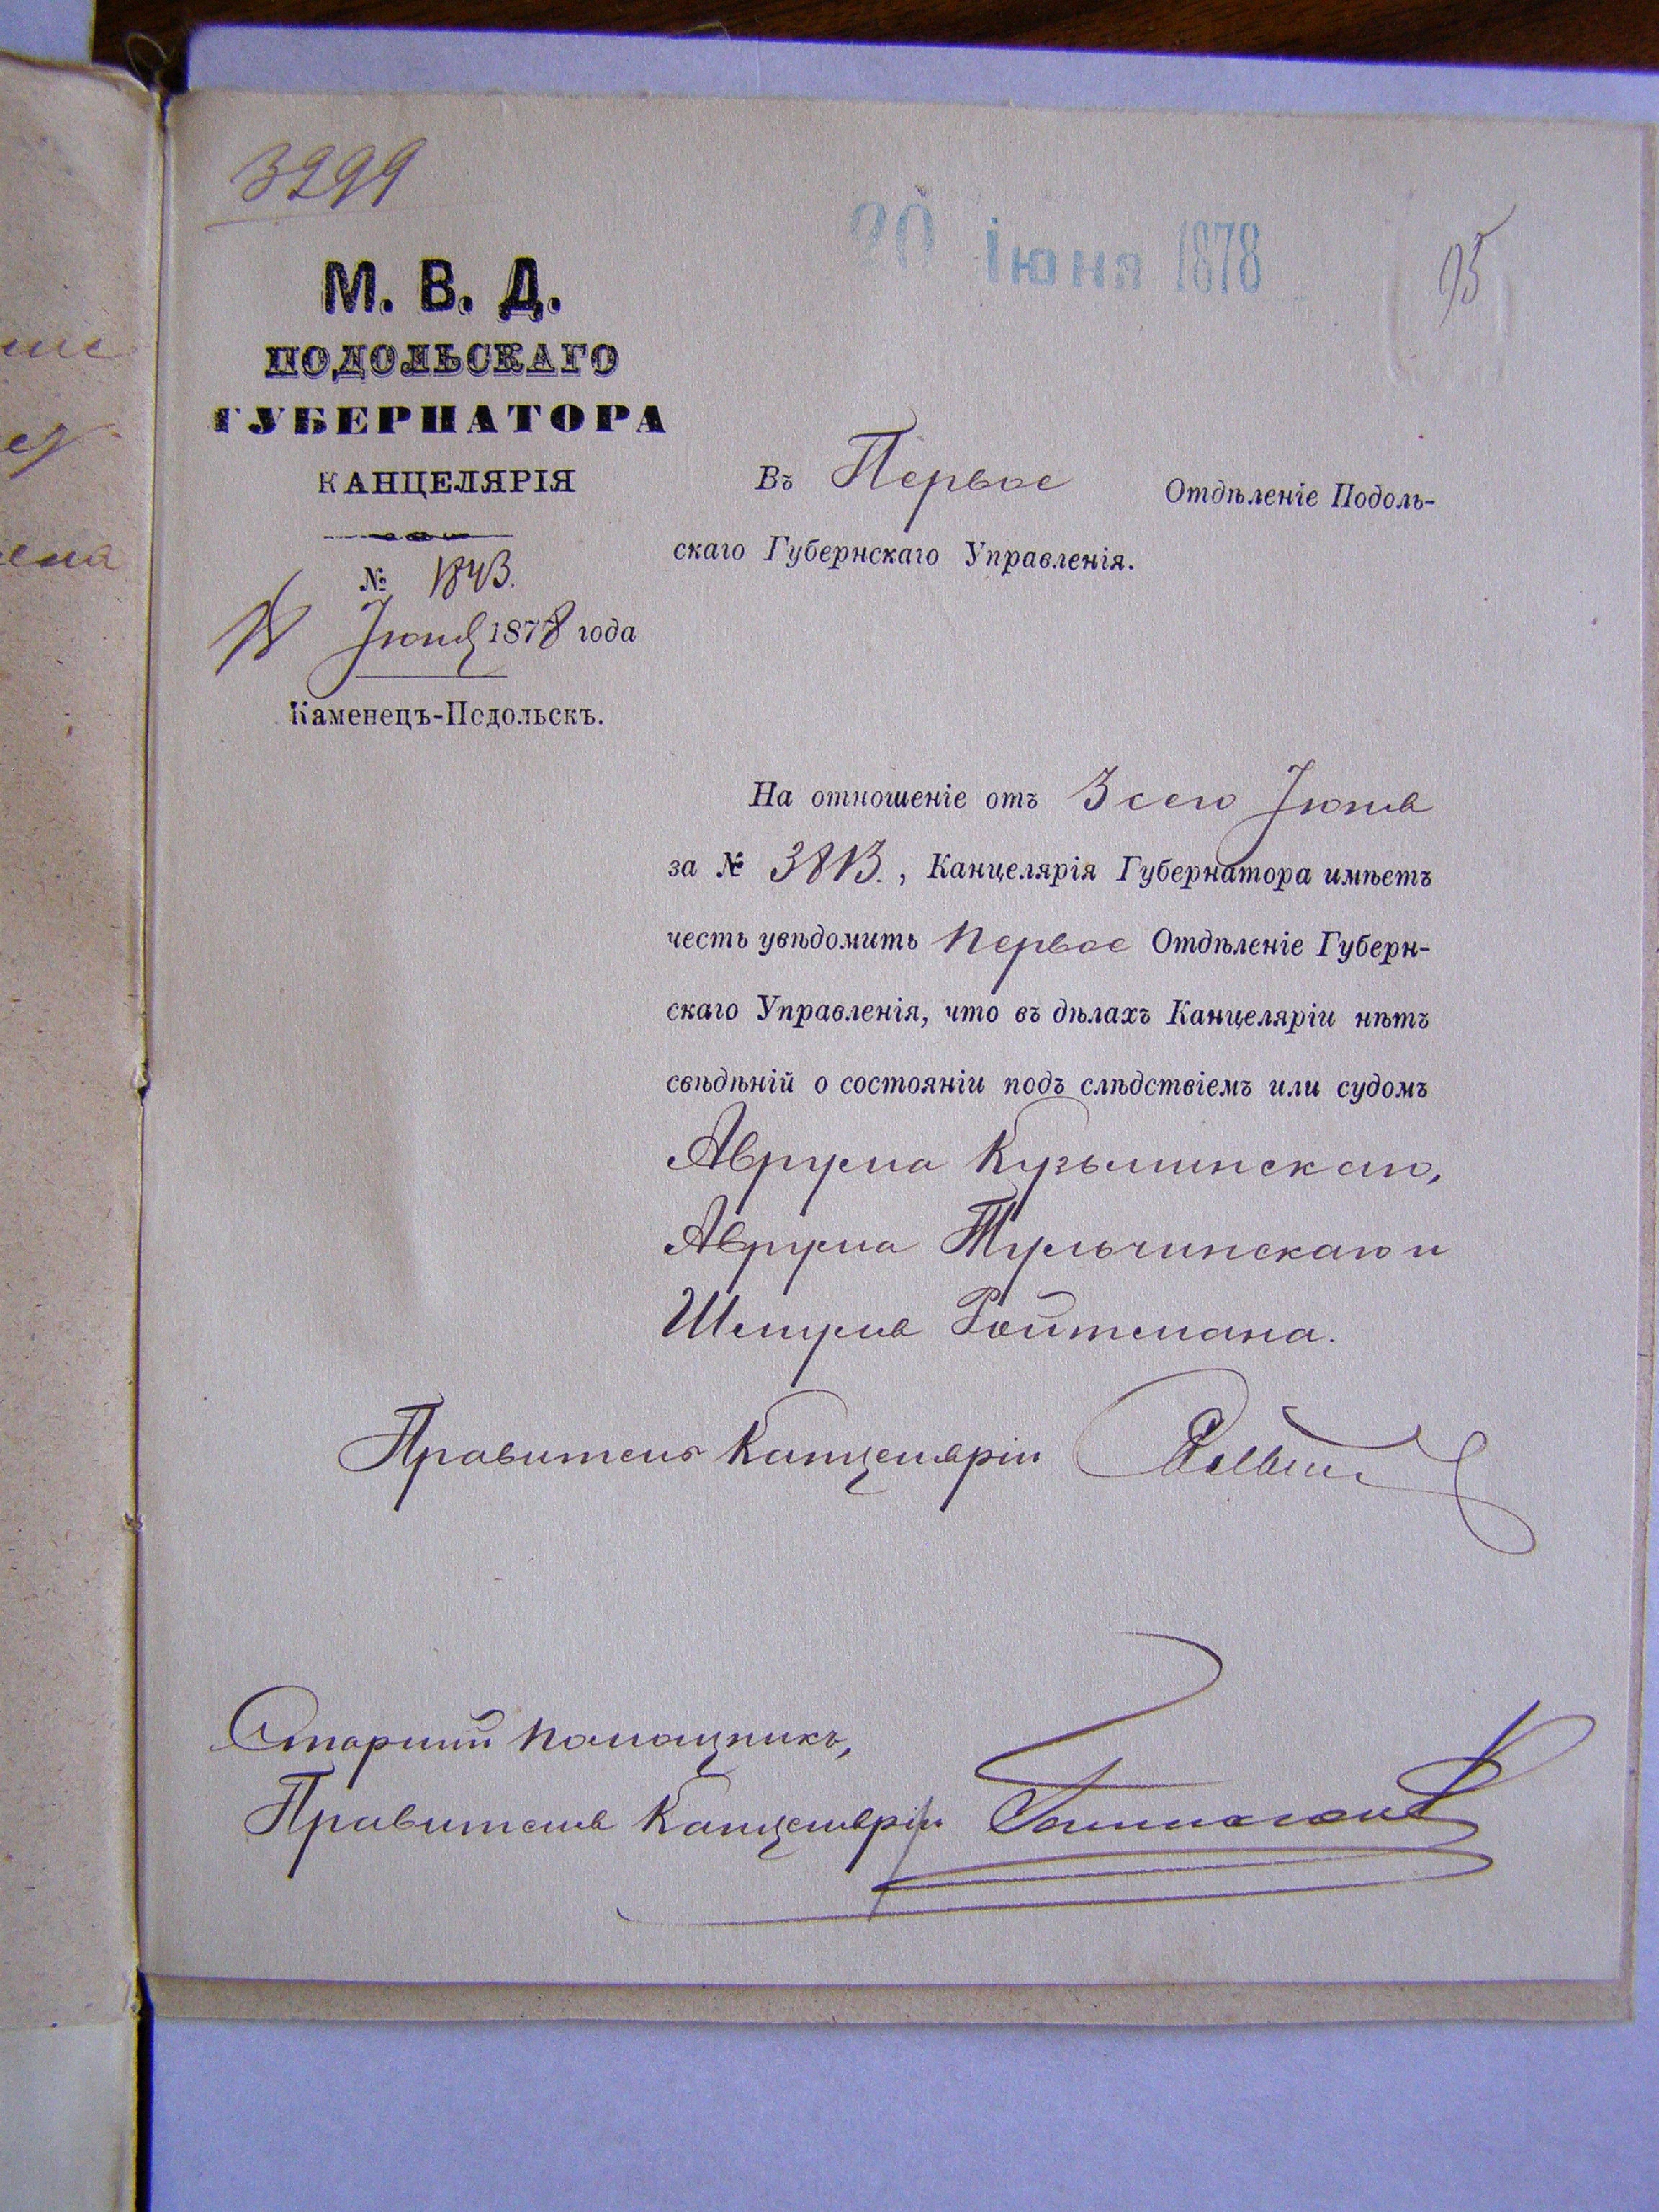 3299
20 Іюня 1878
95
М. В. Д.
ПОДОЛЬСКАГО
ГУБЕРНАТОРА
КАНЦЕЛЯРІЯ
№ 1843.
18 Іюня 1878 года
Каменецъ-Подольскъ.
Въ Первое Отдѣленіе Подоль-
скаго Губернскаго Управленія.
На отношеніе отъ 3 сего Іюня
за № 3813., Канцелярія Губернатора имѣетъ
честь увѣдомить Первое Отдѣленіе Губерн-
скаго Управленія, что въ дѣлахъ Канцеляріи нѣтъ
свѣдѣній о состояніи подъ слѣдствіемъ или судомъ
Аврума Кузьминскаго,
Аврума Тульчинскаго и
Шмуля Ройтмана.
Правитель Канцеляріи
Старшій Помощникъ,
Правителя Канцеляріи